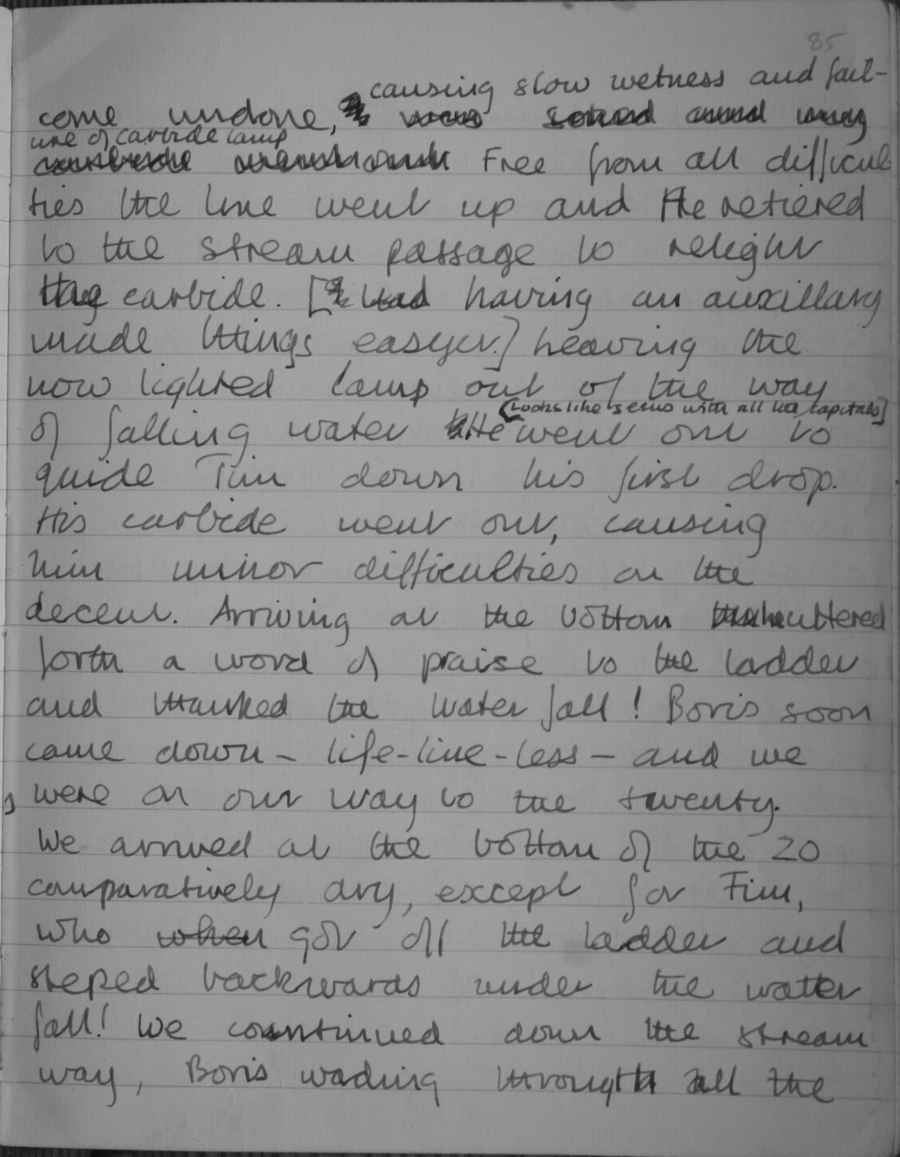 85
causing slow wetness and fail-
come undone,
ure of carbide lamp
Free from all difficul
ties the line went up and He retiered
to the stream passage to relight
carbide. [ having an auxillary
made things easyer.] heaving the
now lighted lamp out of the way
[Looks like with all his capitals]
of falling water He went out to
guide Tim down his first drop.
His carbide went out, causing
him minor difficulties on the
decent. Arriving at the bottom he uttered
forth a word of praise to the ladder
and thanked the water fall! Boris soon
came down - life-line-less - and we
were on our way to the twenty.
We arrived at the bottom of the 20
comparatively dry, except for Tim,
who when got off the ladder and
steped backwards under the watter
fall! We continued down the stream
way, Boris wading through all the